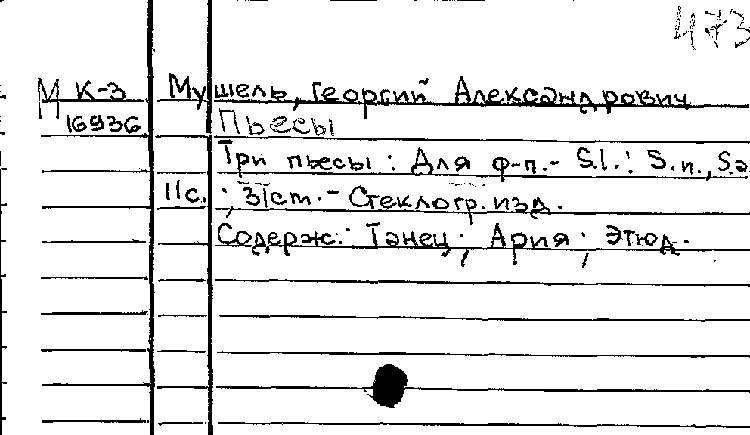 473
М К-3 Мушель, Георгий Александрович
16936 Пьесы
Три пьесы: Для ф-п.- S.l.: S.n., S.a
11с.; 31см.- Стеклогр. изд.
Содерж: Танец; Ария; Этюд.